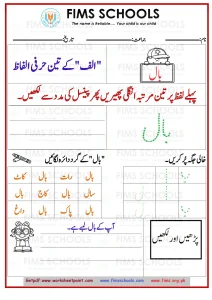 FIMS SCHOOLS
The name is Reliable.... Your child is our child
نام: جماعت: تاریخ:
"الف" کے تین حرفی الفاظ
بال
پہلے لفظ پر تین مرتبہ انگلی پھیریں پھر پینسل کی مدد سے لکھیں۔
بال
"بال" کے گرد دائرہ لگائیں
خالی جگہ پُر کریں۔
بال رات بال کاٹ
سال بال کاج بال
بال پاک بال داغ
آپ کے بال لمبے ہے۔
پڑھیں اور لکھیں
www.fimsschools.com
www.fims.org.pk